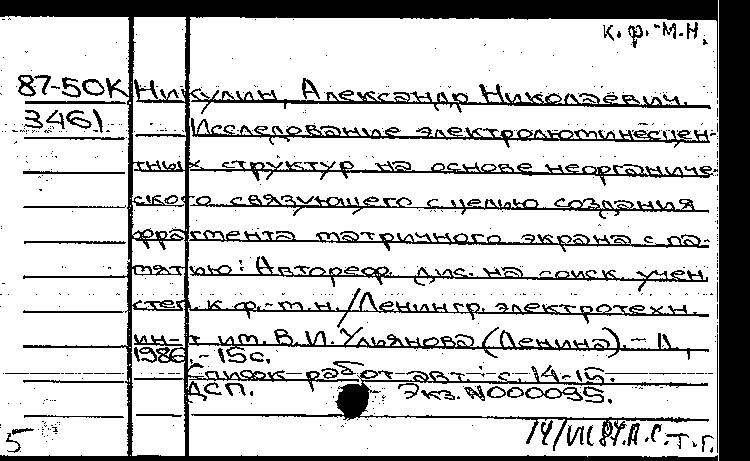 к. ф.-м.н.
87-50К Никулин, Александр Николаевич.
3461 Исследование электролюминесцен-
тных структур на основе неорганиче-
ского связующего с целью создания
фрагмента матричного экрана с па-
мятью: Автореф. дис. на соиск. учен.
степ. к. ф.-м.н. /Ленингр. электротехн.
ин-т им. В.И. Ульянова (Ленина). - Л.,
1986. - 15 с.
Список работ авт.: с. 14-15.
ДСП. Экз. N000095.
5